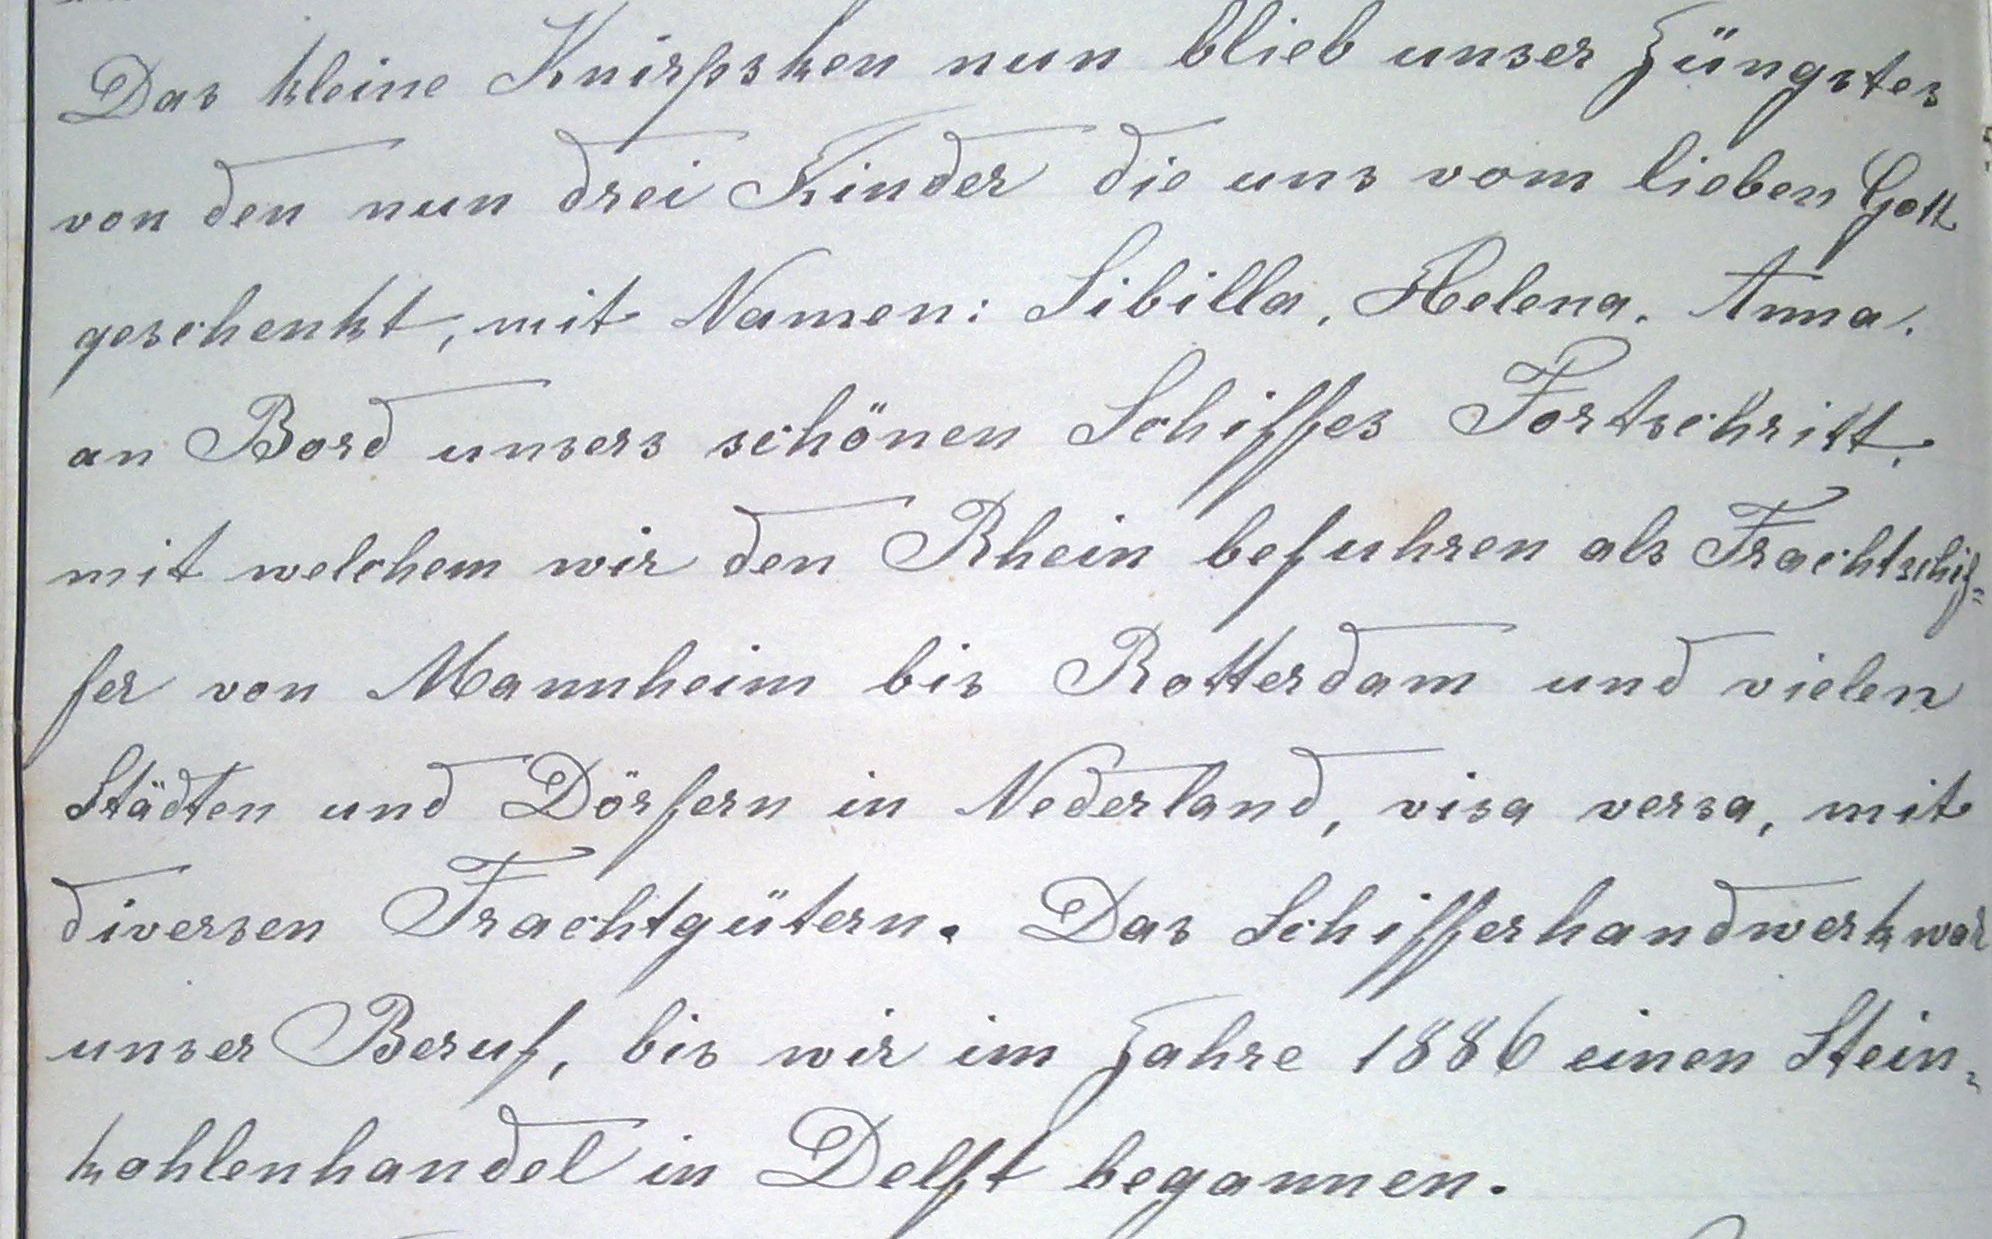 Das kleine Knirpsken nun blieb unser Jüngstes
von den nun drei Kinder die uns vom lieben Gott
geschenkt, mit Namen: Sibilla, Helena, Anna.
an Bord unsers schönen Schiffes Fortschritt,
mit welchem wir den Rhein befuhren als Frachtschif=
fer von Mannheim bis Rotterdam und vielen
Städten und Dörfern in Nederland, visa versa, mit
diversen Frachtgütern. Das Schifferhandwerk war
unser Beruf, bis wir im Jahre 1886 einen Stein=
kohlenhandel in Delft begannen.